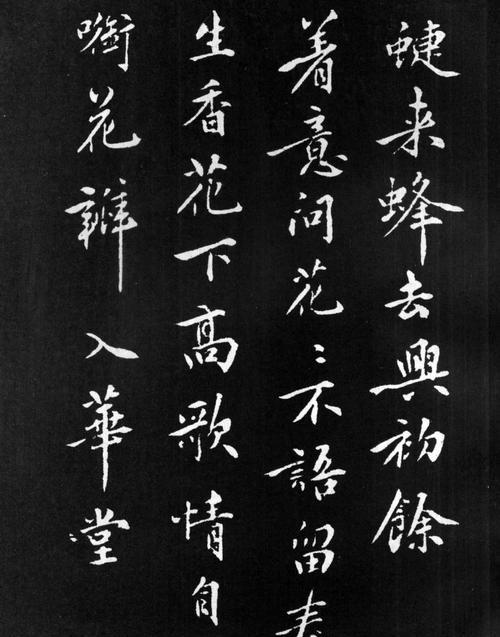 蜨来蜂去興初餘
着意问花々不語留春
生香花下高歌情自
㘅花瓣入華堂